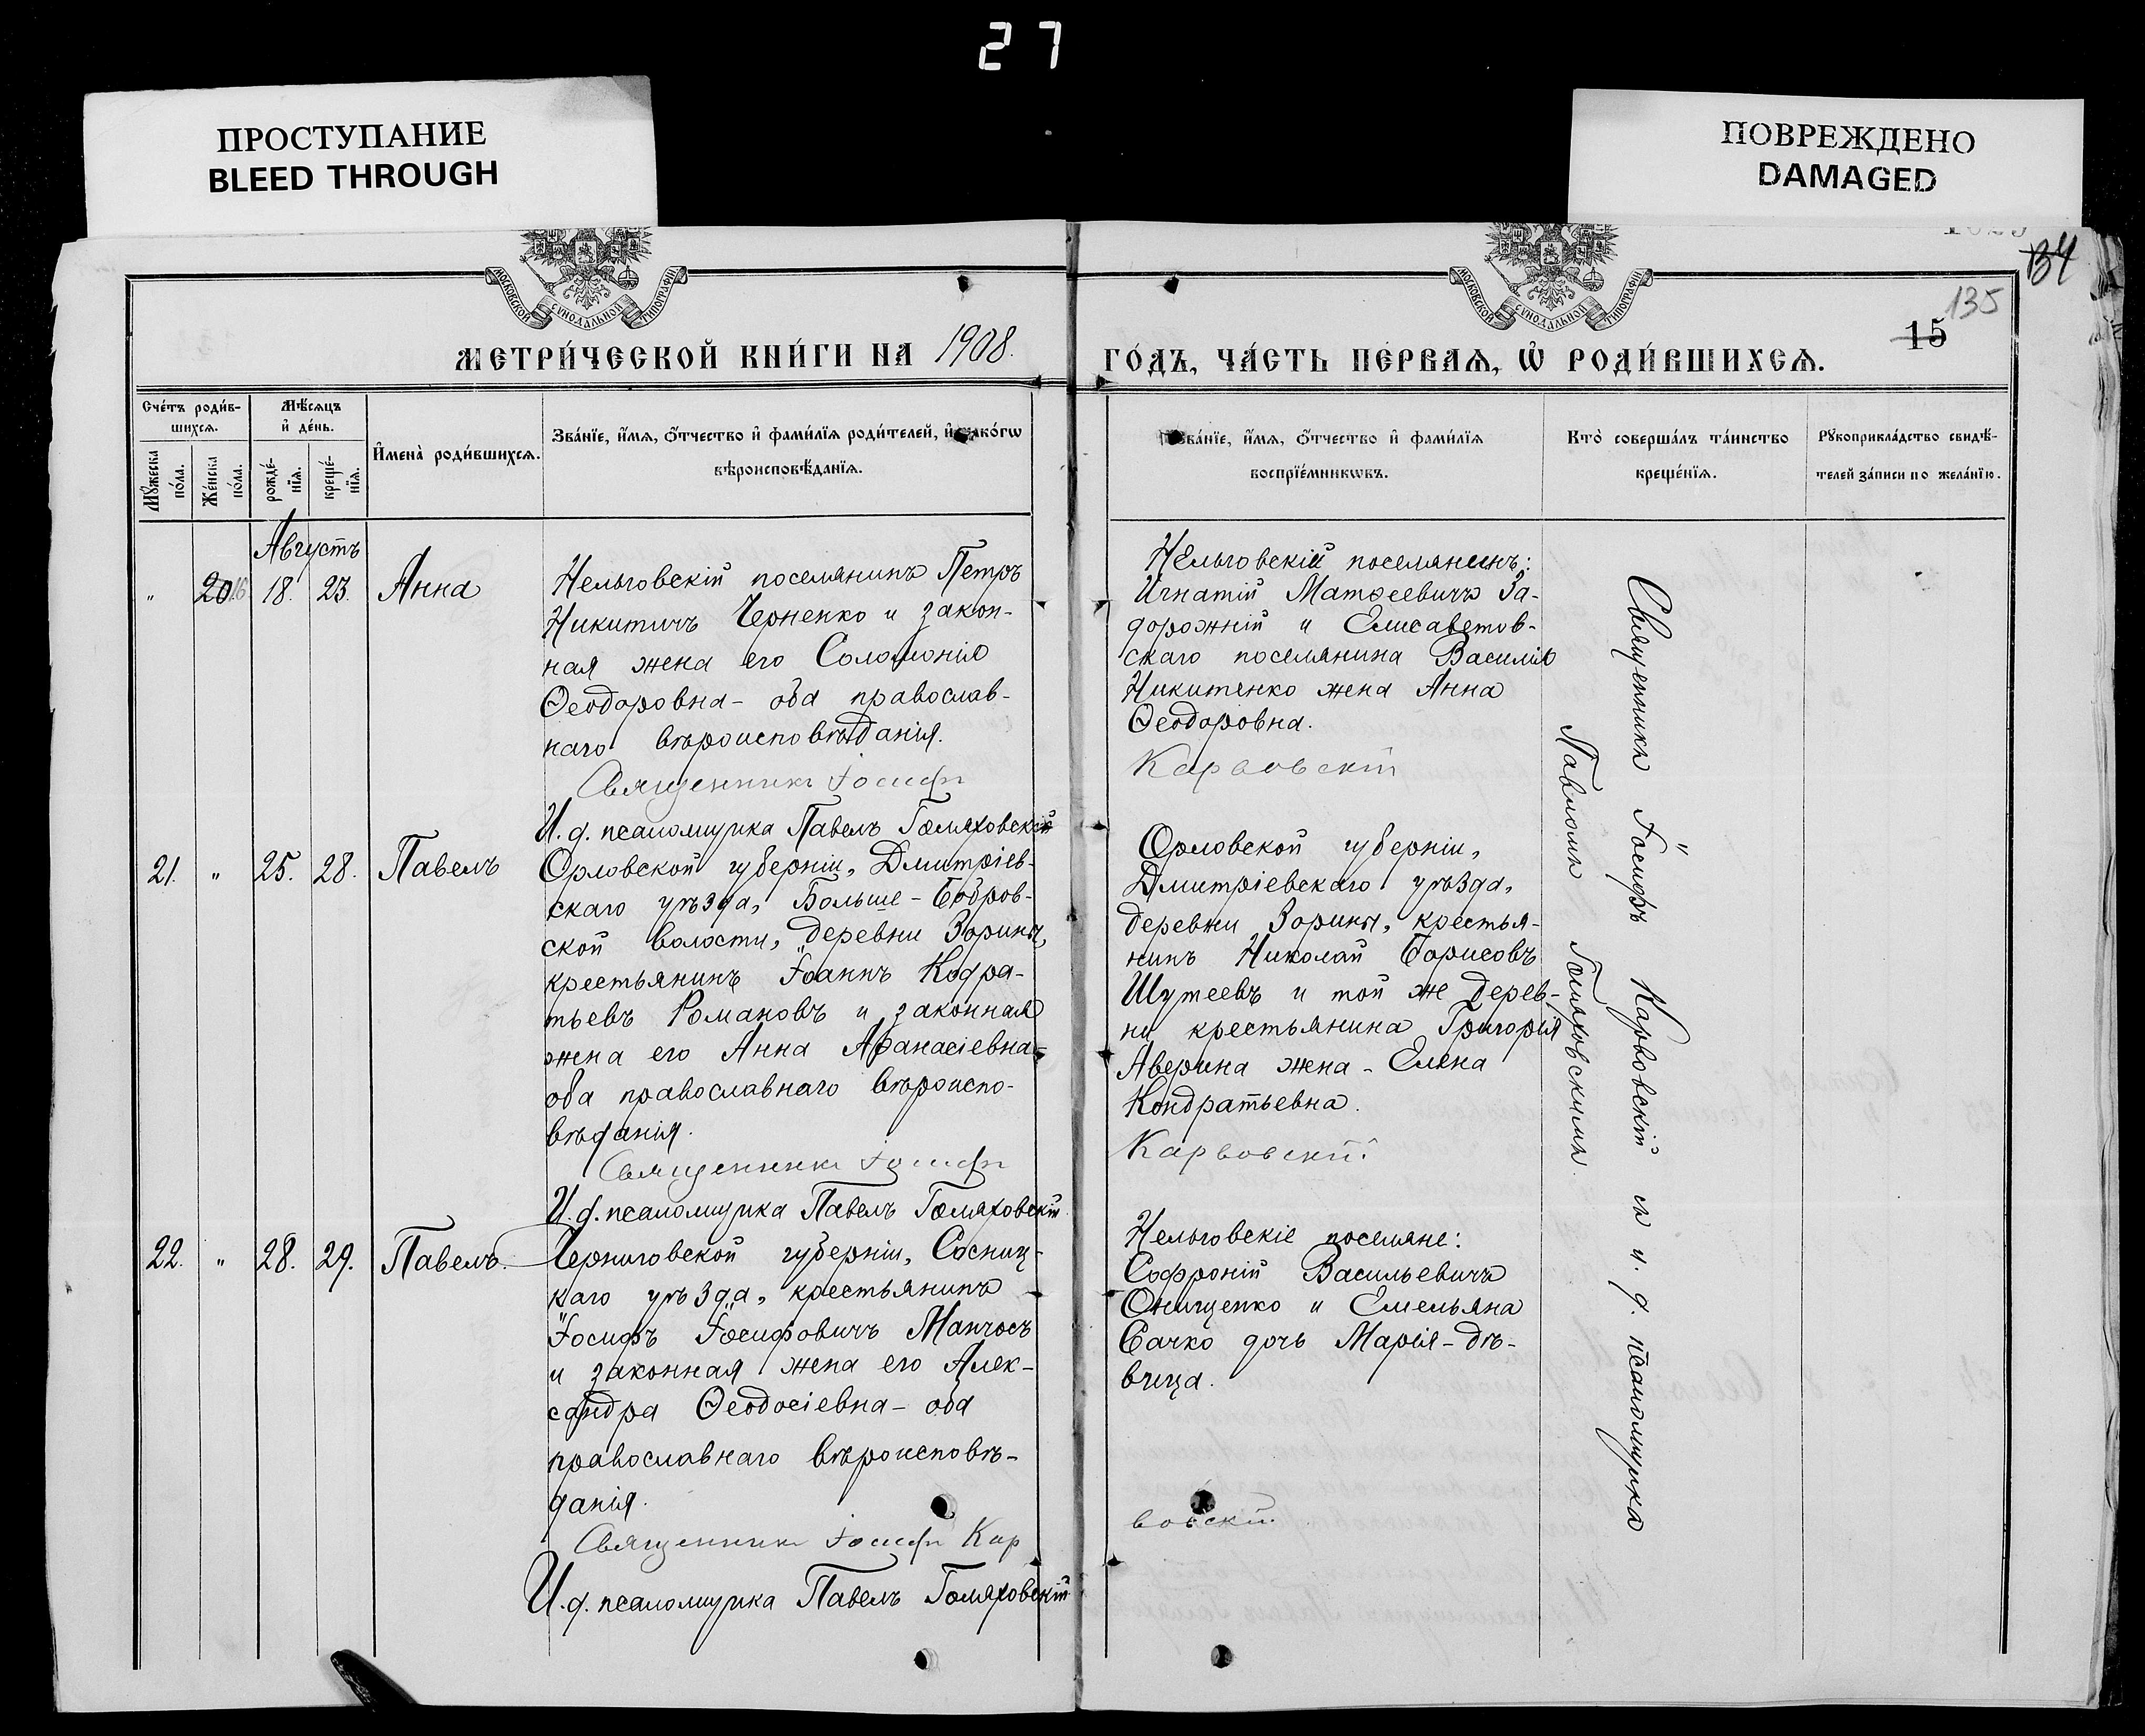 27
ПРОСТУПАНИЕ
BLEED THROUGH
ПОВРЕЖДЕНО
DAMAGED
134
135
15
МОСКОВСКОЙ СѴНОДАЛЬНОЙ ТИПОГРАФІИ
МОСКОВСКОЙ СѴНОДАЛЬНОЙ ТИПОГРАФІИ
МЕТРИ́ЧЕСКОЙ КНИ́ГИ НА 1908.
ГО́ДЪ, ЧА́СТЬ ПЕ́РВАѦ, Ѿ РОДИ́ВШИХСѦ.
Сче́тъ роди́в-
шихсѧ.
Мѣ́сѧцъ
и҆ де́нь.
И҆мена̀ роди́вшихсѧ.
Зва́нїе, и҆́мѧ, ѻ҆́тчество и҆ фами́лїѧ роди́телей, и҆ како́гѡ
вѣроисповѣ́данїѧ.
Мꙋ́жеска
по́ла.
Же́нска
по́ла.
рожде́-
нїѧ.
креще́-
нїѧ.
Зва́нїе, и҆́мѧ, ѻ҆́тчество и҆ фами́лїѧ
воспрїе́мникѡвъ.
Кто̀ соверша́лъ та́инство
креще́нїѧ.
Рꙋкоприкла́дство свидѣ́-
телей за́писи по жела́нїю.
Августъ
" 20 16 18. 23. Анна
Нельговскій поселянинъ Петръ
Никитичъ Черненко и закон-
ная жена его Соломонія
Ѳеодоровна - оба православ-
наго вѣроисповѣданія.
Священникъ Іосифъ
И. д. псаломщика Павелъ Голяховскій
Нельговскій поселянинъ:
Игнатій Матѳеевичъ За-
дорожній и Елисаветов-
скаго поселянина Василія
Никитенко жена Анна
Ѳеодоровна.
Карвовскій
21. " 25. 28. Павелъ
Орловской губерніи, Дмитріев-
скаго уѣзда, Больше-Бобров-
ской волости, деревни Зорины,
крестьянинъ Іоаннъ Кодра-
тьевъ Романовъ и законная
жена его Анна Аѳанасіевна -
оба православнаго вѣроиспо-
вѣданія.
Священникъ Іосифъ
И. д. псаломщика Павелъ Голяховскій
Орловской губерніи,
Дмитріевскаго уѣзда,
деревни Зорины, крестья-
нинъ Николай Борисовъ
Шутеевъ и той же дерев-
ни крестьянина Григорія
Аверина жена - Елена
Кондратьевна.
Карвовскій
22. " 28. 29. Павелъ.
Черниговской губерніи, Сосниц-
каго уѣзда, крестьянинъ
Іосифъ Іосифовичъ Манчосъ
и законная жена его Алек-
сандра Ѳеодосіевна - оба
православнаго вѣроисповѣ-
данія.
Священникъ Іосифъ Кар
И. д. псаломщика Павелъ Голяховскій
Нельговскіе поселяне:
Софроній Васильевичъ
Онищенко и Емельяна
Сачко дочь Марія - дѣ-
вица.
вовскій
Священникъ Іосифъ Карвовскій съ и. д. псаломщика
Павломъ Голяховскимъ